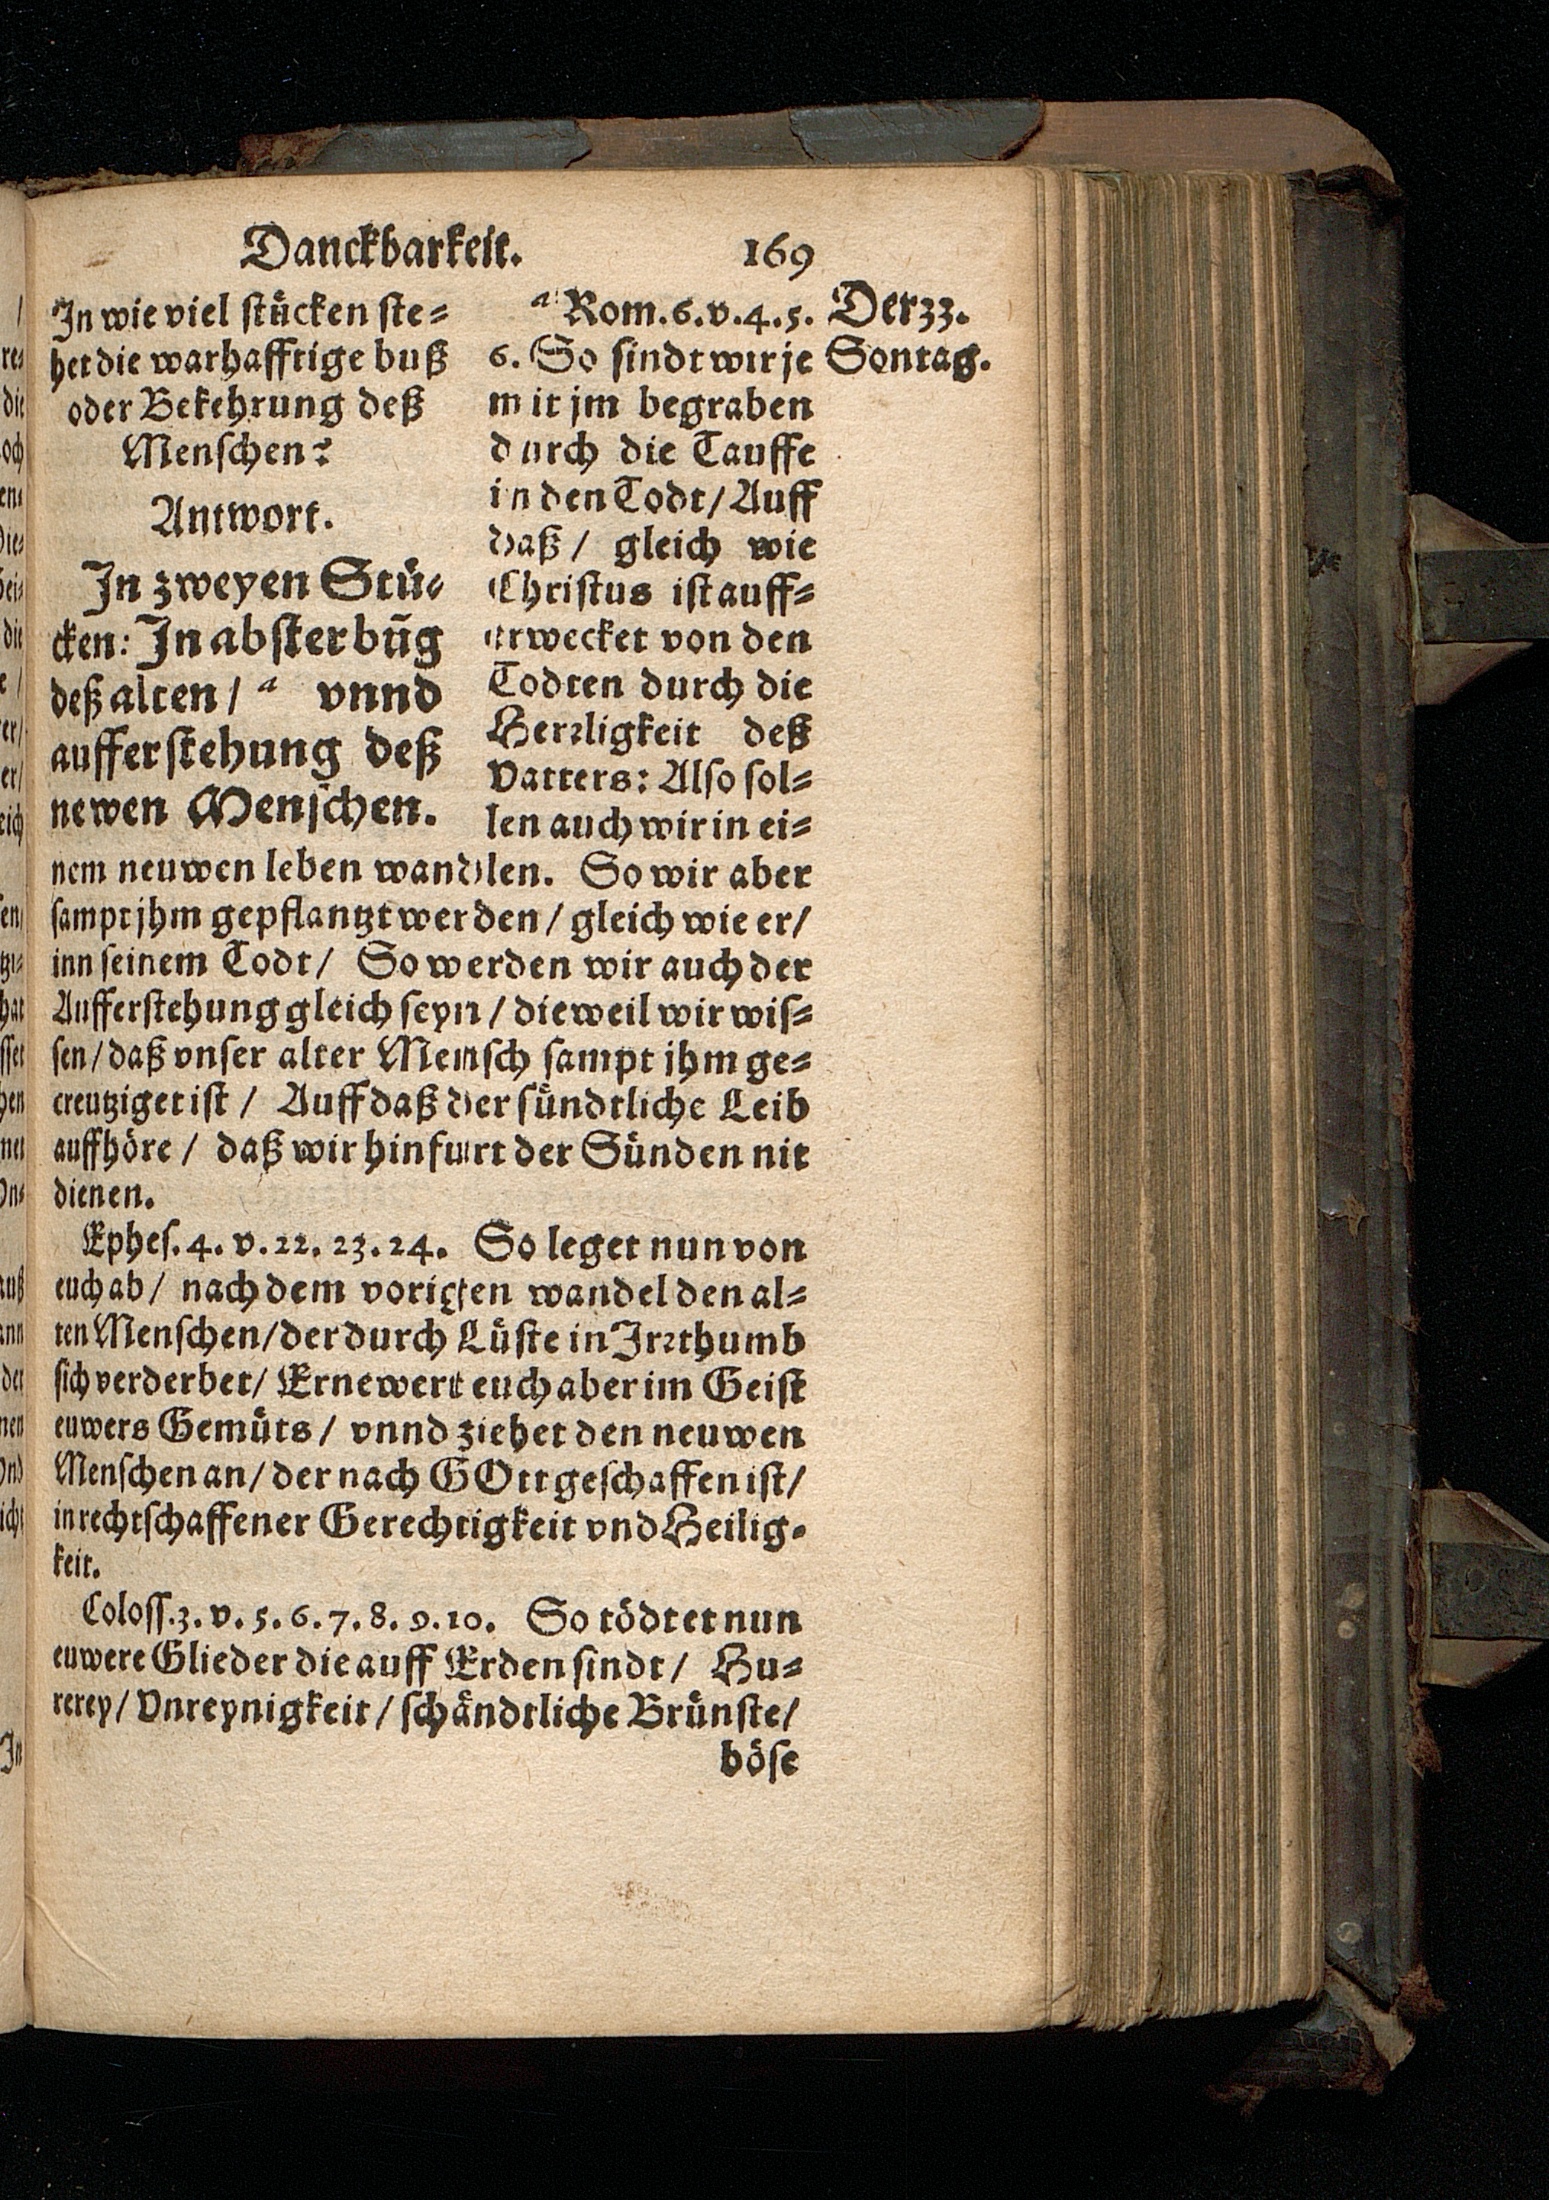 Danckbarkeit. 169
In wie viel stücken ste=
het die warhafftige buß
oder Bekehrung deß
Menschen?
Antwort.
In zweyen Stü=
cken: In absterbūg
deß alten / a vnnd
aufferstehung deß
newen Menschen.
a Rom. 6. v. 4. 5.
6. So sindt wir je
mit jm begraben
durch die Tauffe
in den Todt / Auff
daß / gleich wie
Christus ist auff=
erwecket von den
Todten durch die
Herrligkeit deß
Vatters: Also sol=
len auch wir in ei=
Der 33.
Sontag.
nem neuwen leben wandlen. So wir aber
sampt jhm gepflantzt werden / gleich wie er /
inn seinem Todt / So werden wir auch der
Aufferstehung gleich seyn / dieweil wir wis=
sen / daß vnser alter Mensch sampt jhm ge=
creutziget ist / Auff daß der sündtliche Leib
auffhöre / daß wir hinfurt der Sünden nit
dienen.
Ephes. 4. v. 22. 23. 24. So leget nun von
euch ab / nach dem vorigen wandel den al=
ten Menschen / der durch Lüste in Irrthumb
sich verderbet / Ernewert euch aber im Geist
euwers Gemüts / vnnd ziehet den neuwen
Menschen an / der nach GOtt geschaffen ist /
in rechtschaffener Gerechtigkeit vnd Heilig=
keit.
Coloss. 3. v. 5. 6. 7. 8. 9. 10. So tödtet nun
euwere Glieder die auff Erden sindt / Hu=
rerey / Vnreynigkeit / schändtliche Brünste /
böse